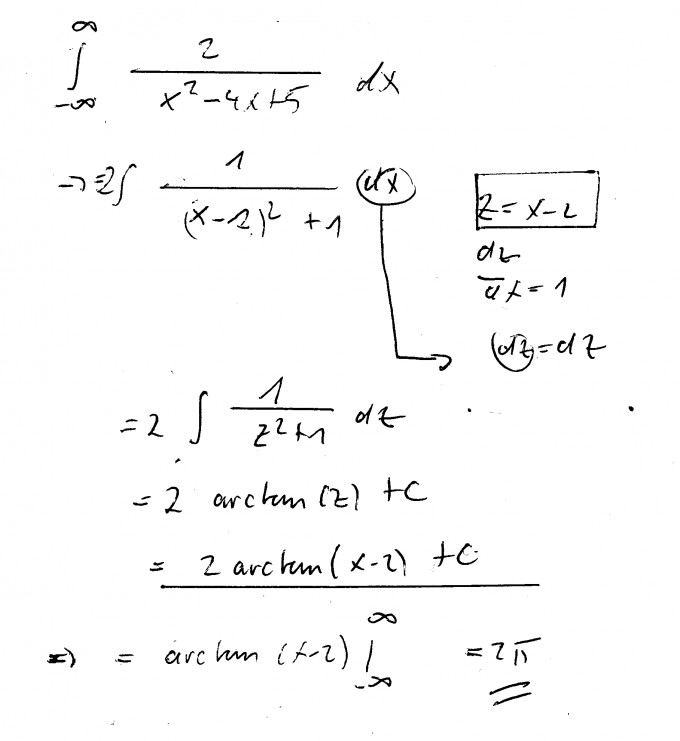 ∞
∫ 2 / (x² - 4x + 5) dx
-∞
→ = 2∫ 1 / ((x-2)² + 1) dx
z = x-2
dz / dx = 1
dz = dz
= 2 ∫ 1 / (z² + 1) dz
= 2 arctan (z) + C
= 2 arctan (x-2) + C
⇒ = arctan (x-2) |∞ -∞ = 2π